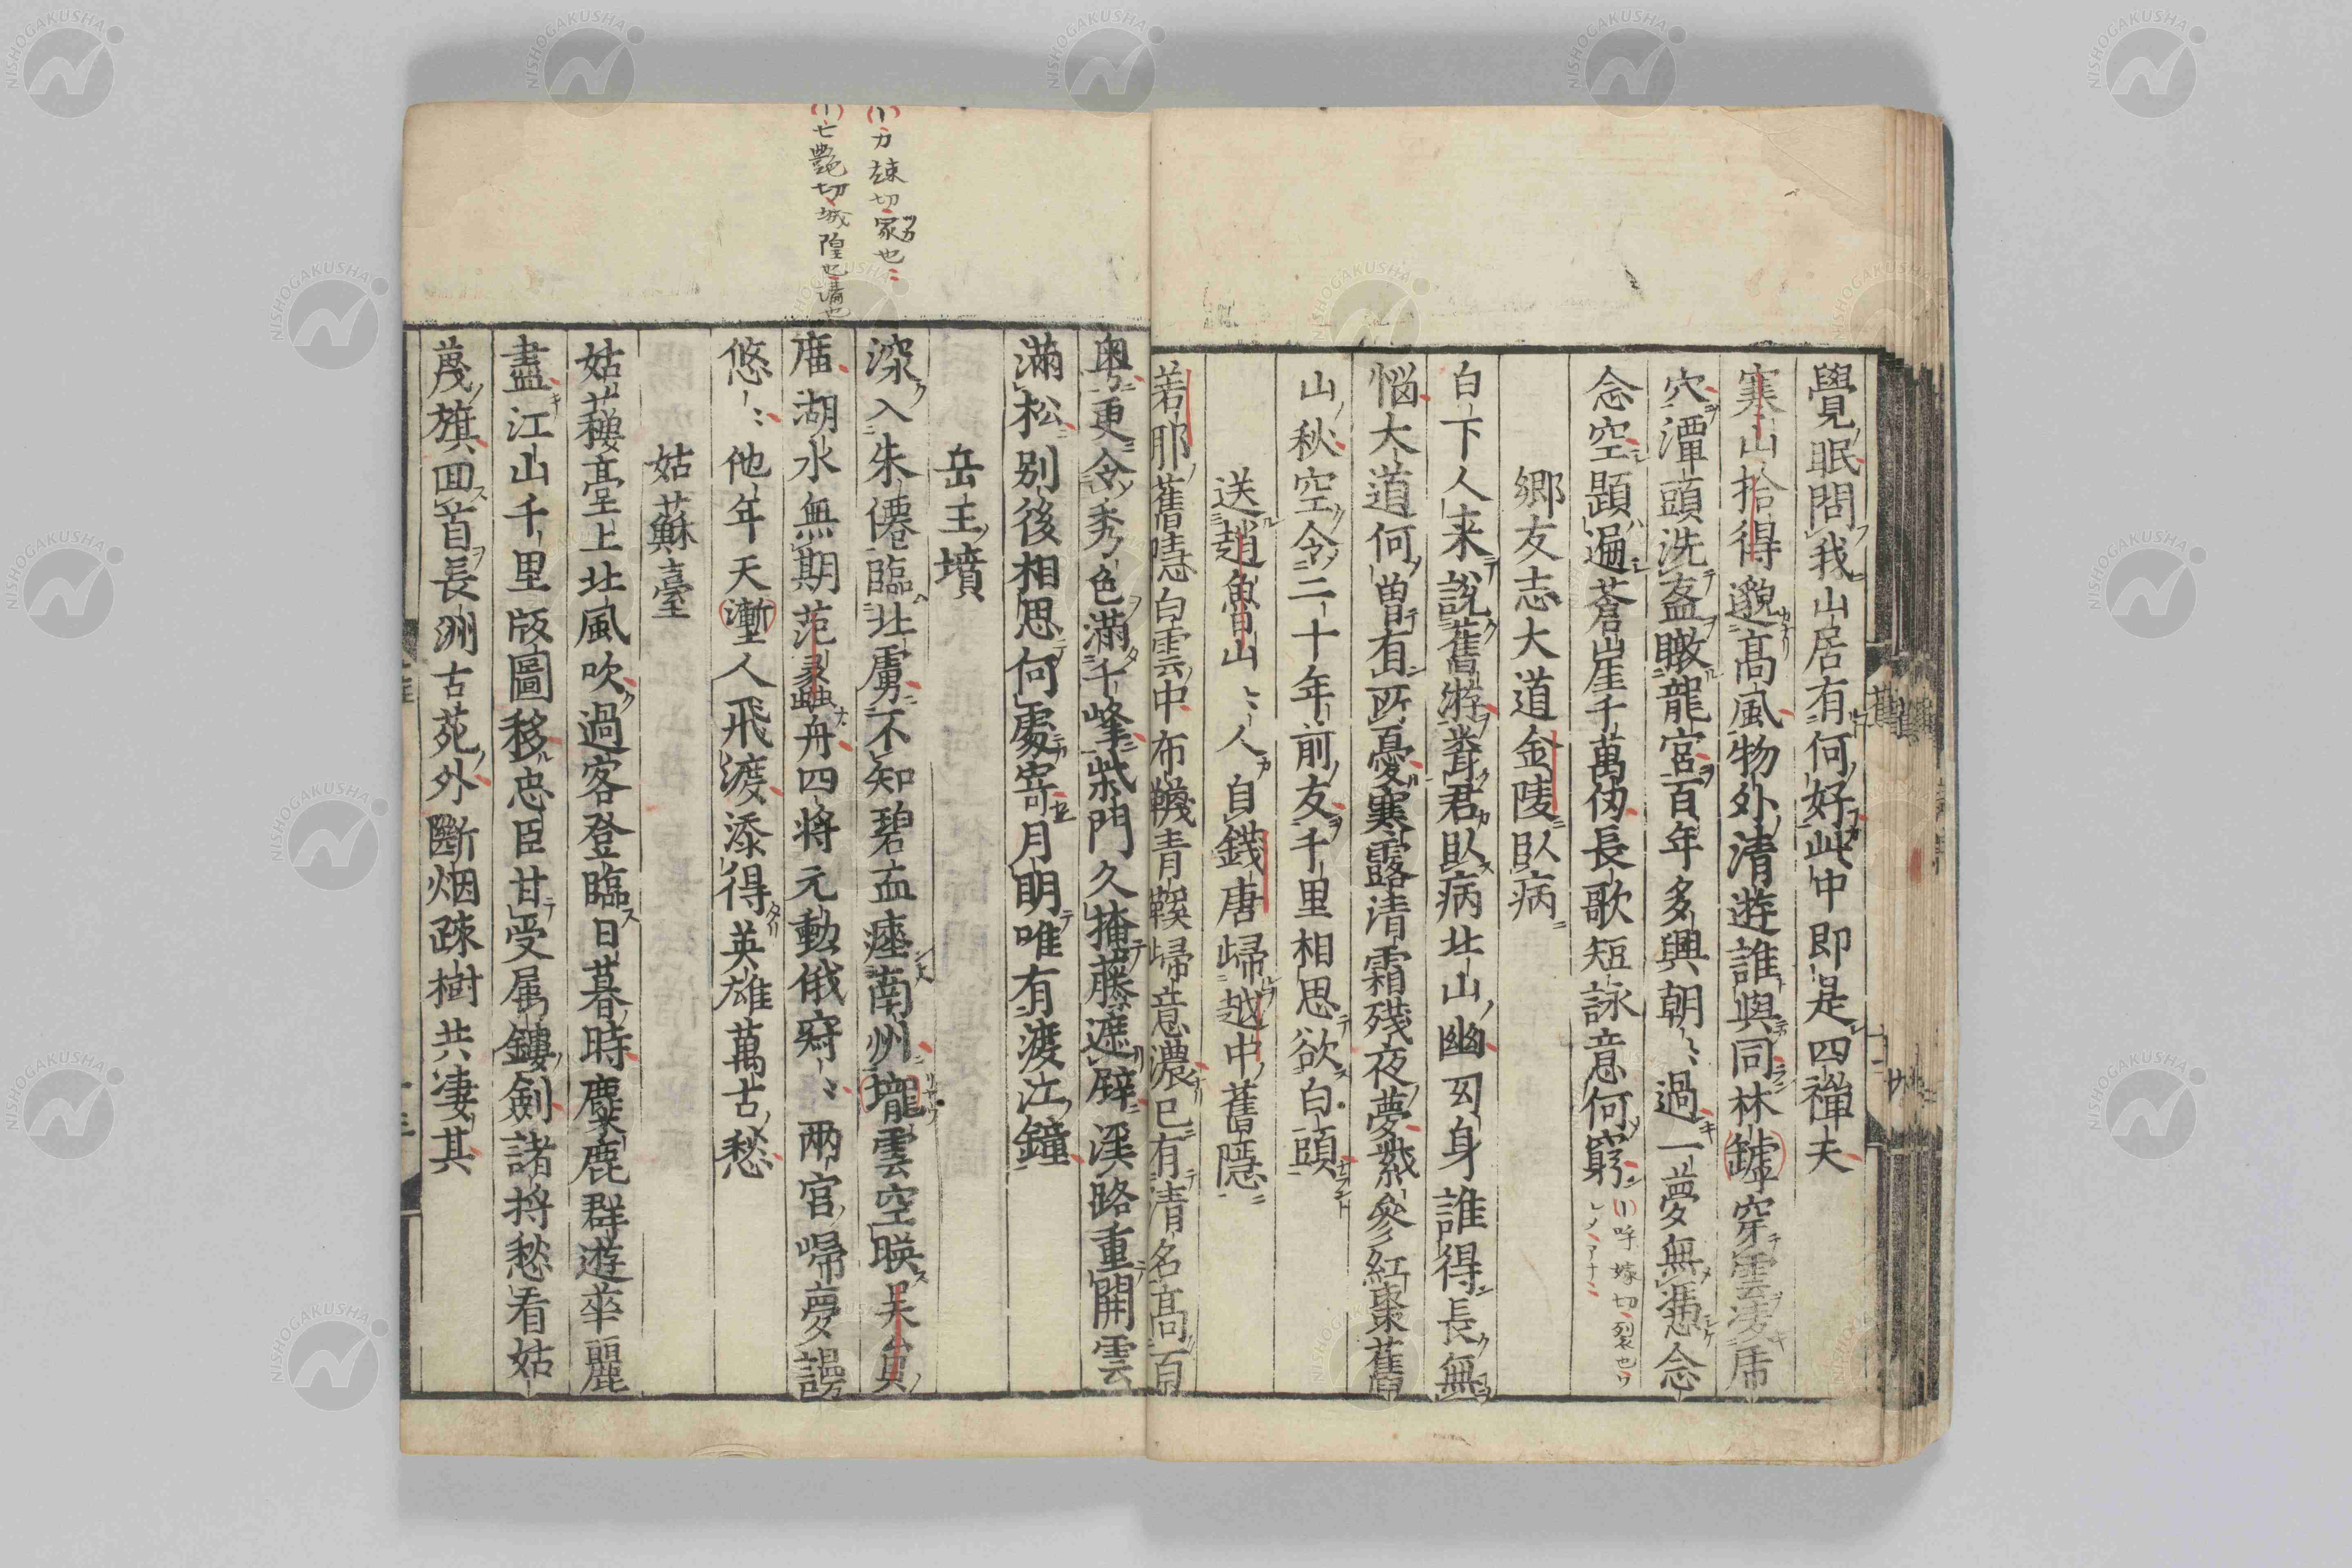 覺眠問我山居有何好此中即是四禪夫
寒山拾得邈高風物外清遊誰與同林罅穿雲凌虎
穴潭頭洗盋瞰龍宮百年多興朝〻過一夢無憑念
念空題遍蒼崖千萬仞長歌短詠意何窮
呼嫁切裂也
鄉友志大道金陵臥病
白下人来說舊遊聳君臥病北山幽幻身誰得長無
惱大道何曽有所憂寒露清霜殘夜夢紫參紅棗舊
山秋空令二十年前友千里相思欲白頭
送趙魯山〻人自錢唐歸越中舊隱
若耶舊隱白雲中布韈青鞵歸意濃已有清名高百
粤更令秀色滿千峰柴門久掩藤遮壁溪路重開雲
滿松別後相思何處寄月明唯有渡江鐘
岳王墳
力竦切冢也
深入朱僊臨北虜不知碧血瘞南州壠雲空映吳貟
七艶切城隍也
廣湖水無期范蠡舟四將元動俄寂〻兩官歸夢謾
悠〻他年天塹人飛渡添得英雄萬古愁
姑蘇臺
姑蘓臺上北風吹過客登臨日暮時麋鹿群遊華麗
盡江山千里版圖移忠臣甘受属鏤劍諸將愁看姑
蔑旗回首長洲古苑外斷烟疎樹共凄其